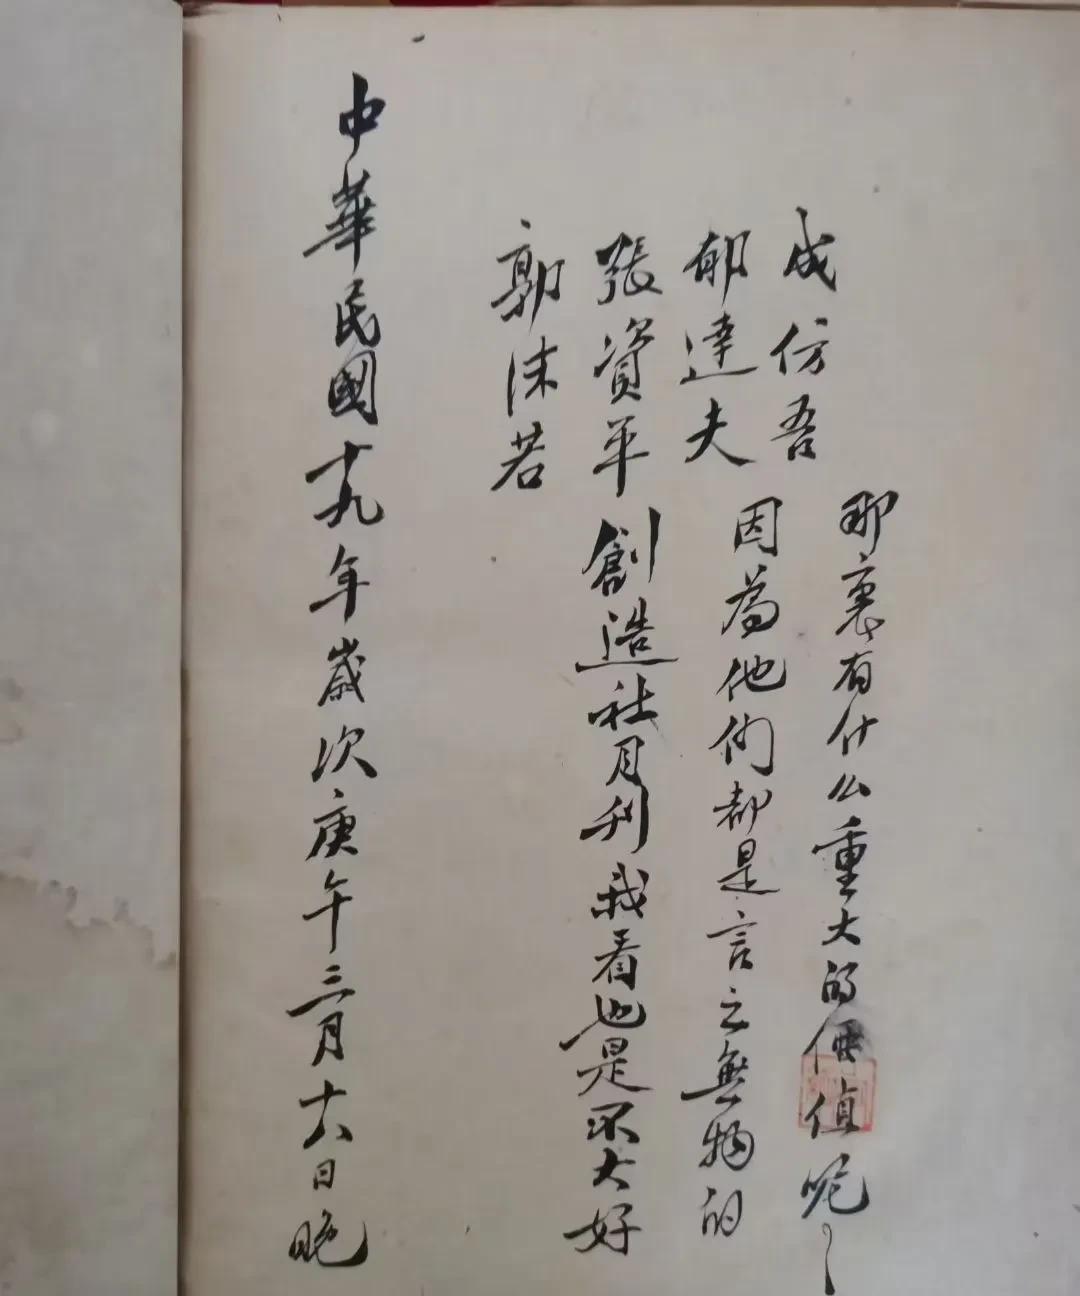 中華民國十九年歲次庚午三月十六日晚
郭沫若
張資平
郁達夫
成仿吾
創造社月刊我看也是不大好
因為他们都是言之無物的
那裏有什么重大的價值呢